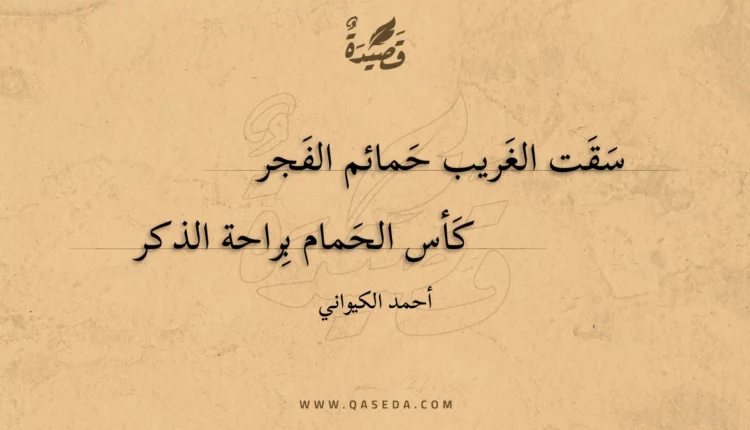 قَصِيْدَةٌ
سَقَت الغَريب حَمائم الفَجر
كَأس الحَمام بِراحة الذكر
أحمد الكيواني
WWW.QASEDA.COM